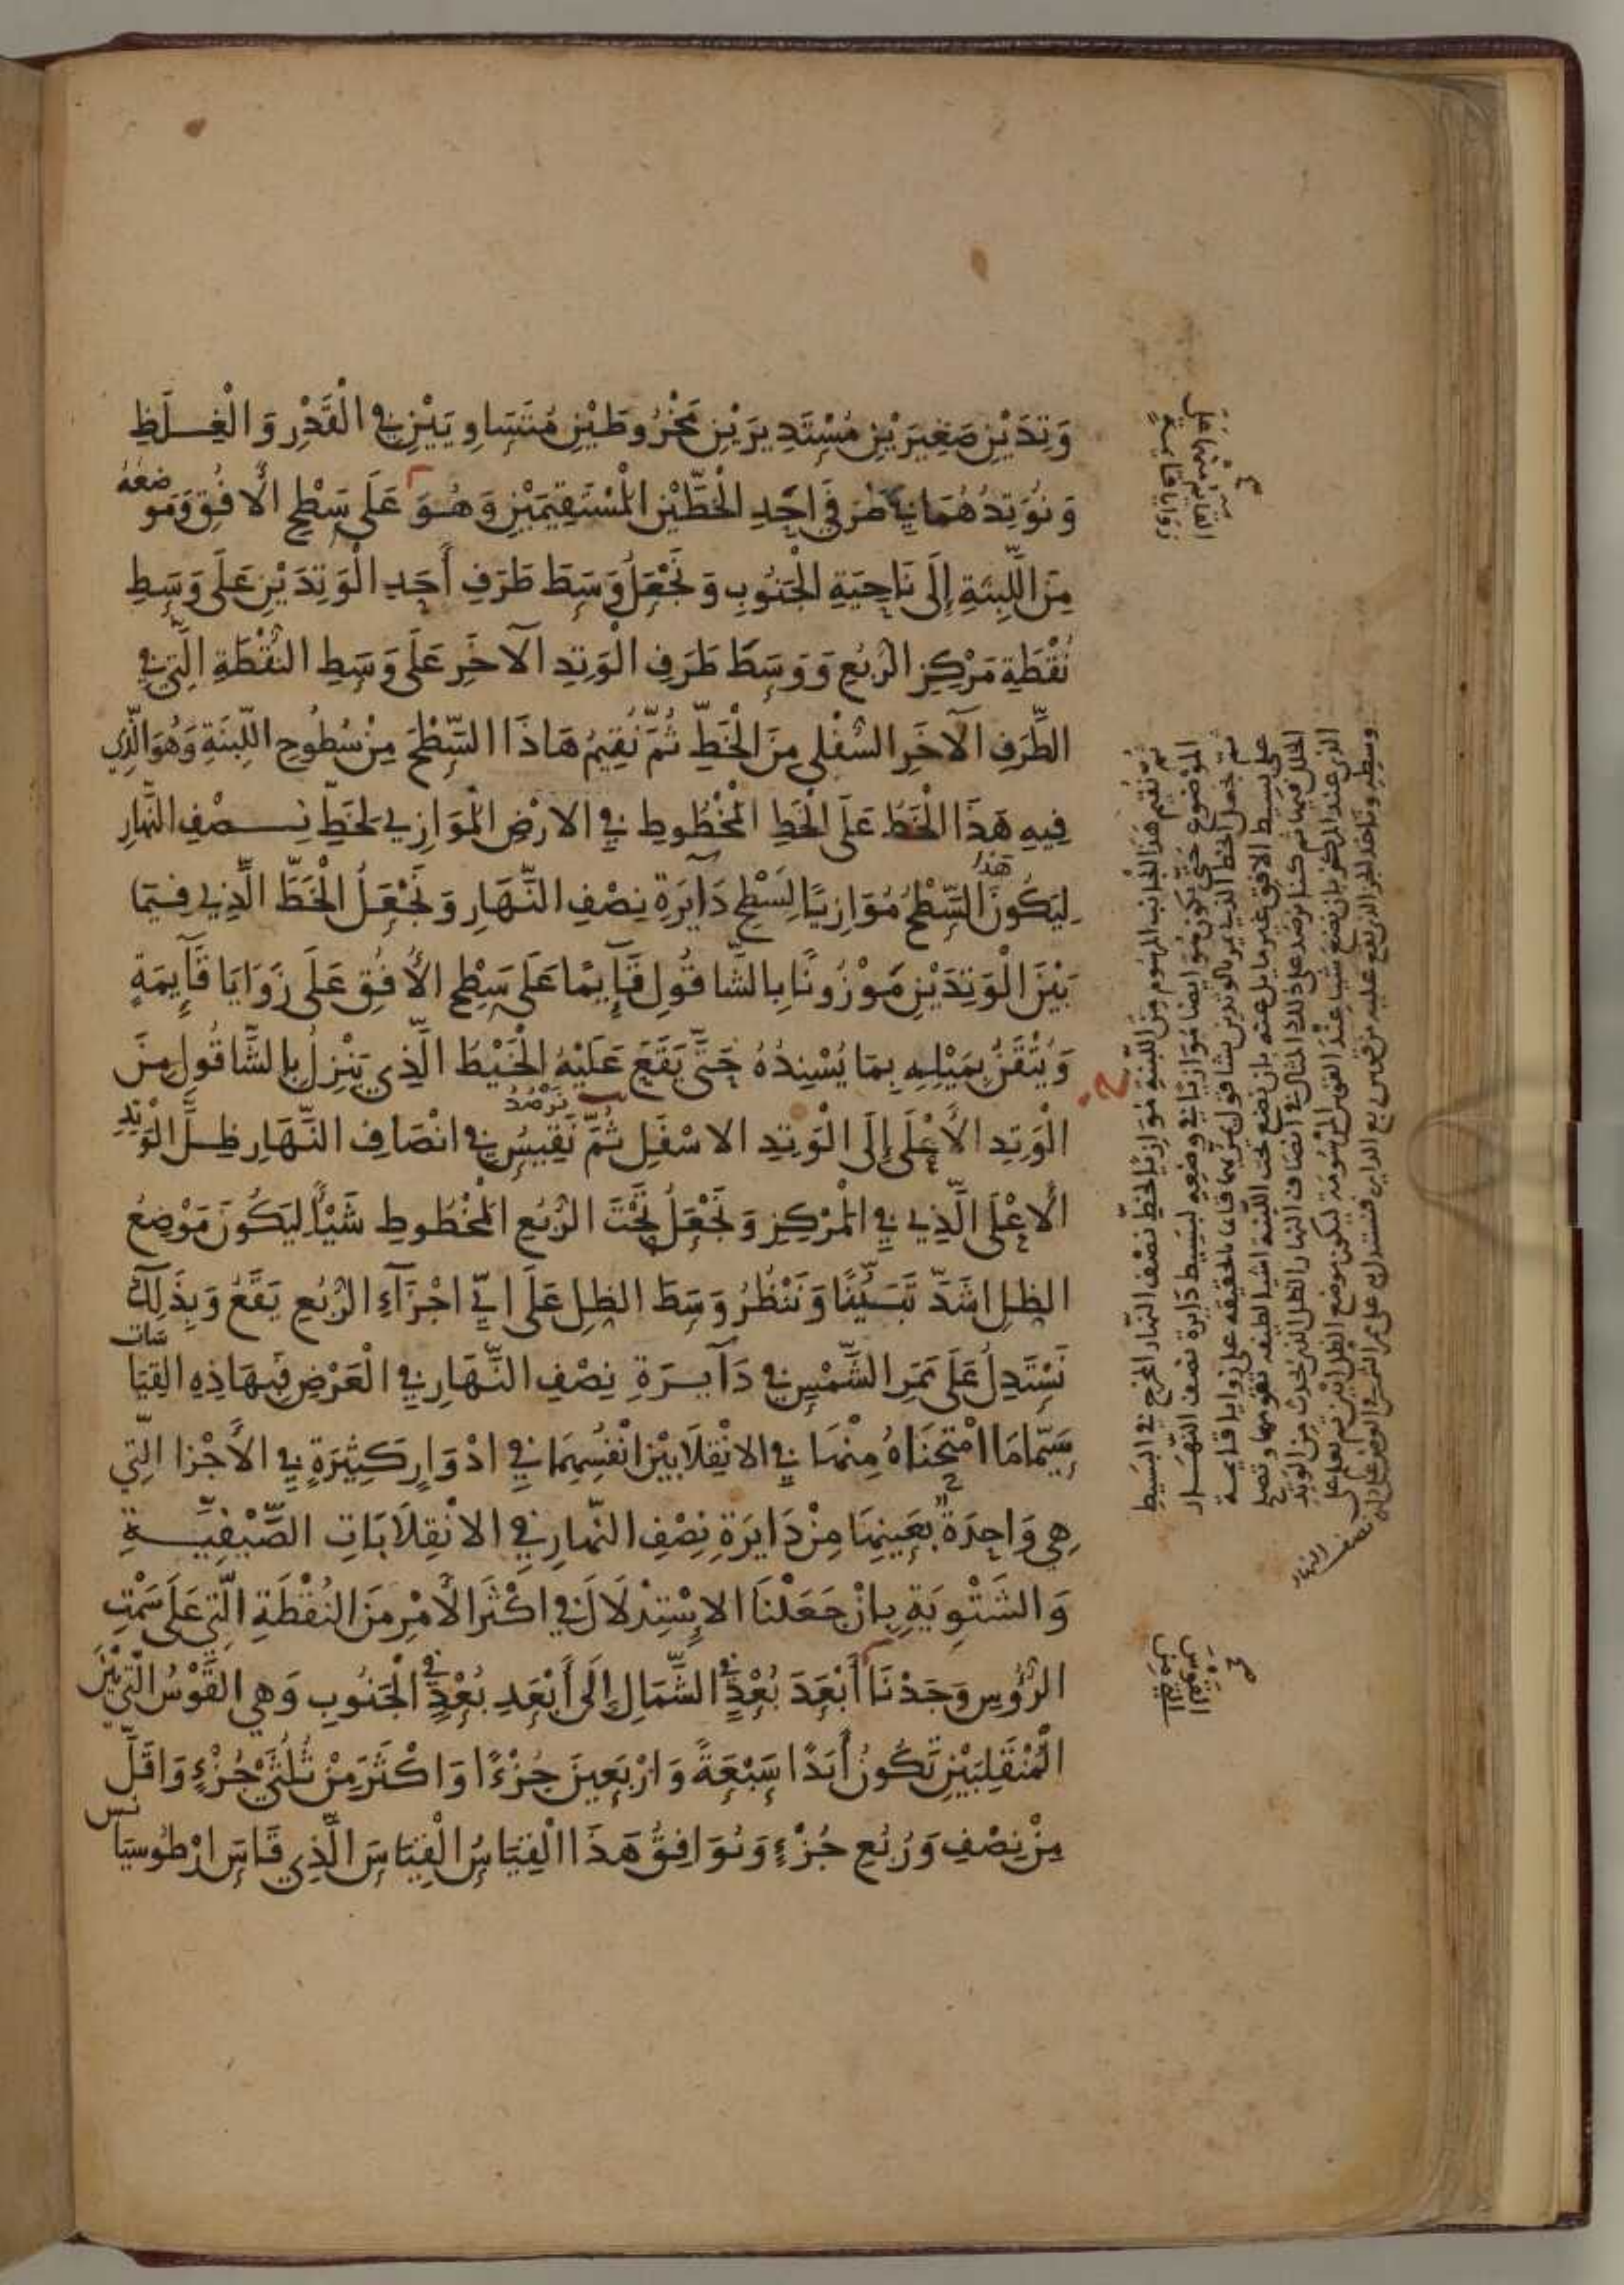 وَتِدَيْنِ صَغِيرَيْنِ مُسْتَدِيرَيْنِ مَخْرُوطَيْنِ مُتَسَاوِيَيْنِ فِي الْقَدْرِ وَالْغِلَظِ
وَنُوَتِدُهُمَا فِي طَرَفَي احَدِ الْخَطَّيْنِ الْمُسْتَقِيمَيْنِ وَهُوَ عَلَى سَطْحِ الْأُفُقِ وَمَوضعُهُ
مِنَ اللَّبِنَةِ إِلَى نَاحِيَةِ الْجَنُوبِ وَنَجْعَلُ وَسَطَ طَرَفِ أَحَدِ الْوَتِدَيْنِ عَلَى وَسَطِ
نُقْطَةِ مَرْكِزِ الرُّبُعِ وَوَسَطَ طَرَفِ الْوَتِدِ الْآخَرِ عَلَى وَسَطِ النُّقْطَةِ الَّتِي فِي
الطَّرَفِ الْآخَرِ السُّفْلِي مِنَ الْخَطِّ ثُمَّ نُقِيمُ هَاذَا السَّطْحَ مِنْ سُطُوحِ اللَّبِنَةِ وَهُوَ الَّذِي
فِيهِ هَذَا الْخَطُّ عَلَى الْخَطِّ الْمَخْطُوطِ فِي الْارْضِ الْمُوَازِي لِخَطِّ نِصْفِ النَّهَارِ
لِيَكُونَ هَذَا السَّطْحُ مُوَازِيًا لِسَطْحِ دَآيَرَةِ نِصْفِ النَّهَارِ وَنَجْعَلُ الْخَطَّ الَّذِي فِيمَا
بَيْنَ الْوَتِدَيْنِ مَوْزُونًا بِالشَّاقُولِ قَآيِمًا عَلَى سَطْحِ الْأُفُقِ عَلَى زَوَايَا قَآيِمَةٍ
بِمَيْلِهِ بِمَا يُسْنِدُهُ حَتَّى يَقَعَ عَلَيْهِ الْخَيْطُ الَّذِي يَنْزِلُ بِالشَّاقُولِ مِنَ
الْوَتِدِ الْأَعْلَى إِلَى الْوَتِدِ الاسْفَلِ ثُمَّ نَقِيسُ نَرْصُدُ فِي انْصَافِ النَّهَارِ ظِلَّ الْوَتِدِ
الْأَعْلَى الَّذِي فِي الْمَرْكِزِ وَنَجْعَلُ تَحْتَ الرُّبُعِ الْمَخْطُوطِ شَيْأً لِيَكُونَ مَوْضِعُ
الظِلِ اشَدَّ تَبَيُّنًا وَنَنْظُرُ وَسَطَ الظِلِ عَلَى ايِّ اجْزَآءِ الرُّبُعِ يَقَعُ وَبِذَلِكَ
نَسْتَدِلُ عَلَى مَمَرِ الشَّمْسِ فِي دَآيِرَةِ نِصْفِ النَّهَارِ فِي الْعَرْضِ فَبِهَاذِهِ القِيَاسَات
سِيَّمَا مَا امْتَحَنَاهُ مِنْهَا فِي الانْقِلَابَيْنِ انْفُسِهِمَا فِي ادْوَارٍ كَثِيرَةٍ فِي الْأَجْزا الَّتِي
هِي وَاحِدَةٌ بِعَيْنِهَا مِنْ دَايَرَةِ نِصْفِ النَّهَارِ فِي الانْقِلَابَاتِ الصَّيْفِيَّةِ
وَالشَّتْوِيَةِ بِانْ جَعَلْنَا الاسْتِدْلَالَ فِي اكْثَرِ الْأَمْرِ مِنَ النُقْطَةِ الَّتِي عَلَى سَمْتِ
الرُّؤُسِ وَجَدْنَا أَبْعَدَ بُعْدٍ فِي الشَّمَالِ إِلَى أَبْعَدِ بُعْدٍ فِي الْجَنُوبِ وَهِي الْقَوْسُ الَّتِي بَيْنَ
الْمُنْقَلِبَيْنِ تَكُونُ أَبَدًا سَبْعَةً وَارْبَعِينَ جُزْءًا وَاكْثَرَ مِنْ ثُلُثَيْ جُزْءٍ وَاقَلَّ
مِنْ نِصْفِ وَرُبُعِ جُزْءٍ وَيُوَافِقُ هَذَا الْقِيَاسُ الْقِيَاسَ الَّذِي قَاسَ ارْطُوسِيَانس
القايم منهما على
زوايا قايمة
ثم نقيم هذا الجانب المرسوم من اللبنة موازيا لخط نصف النهار المخرج في البسيط
الموضوع حتى يكون هو ايضا موازيا في وضعه لبسيط دايرة نصف النهار
ثم نجعل الخط الذي يمر بالوتدين بشاقول قايما بالحقيقة على زوايا قايمة
على بسيط الافق غير مايل عنه بان نضع تحت اللبنة اشيا لطيفة تقومها وتصلح
الخلل فيها ثم كنا نرصد على ذلك المثال في انصاف النهار الظل الذي يحدث من الوتد
الذي عند المركز بان نضع شيا عند القوس المرسومة ليكون موضع الظل
وسطه وناخذ الجز الذي يقع عليه من قوس ربع الدايرة فنستدل به على ممر الشمس في العرض على دايرة
نصف النهار
القوس
التي من